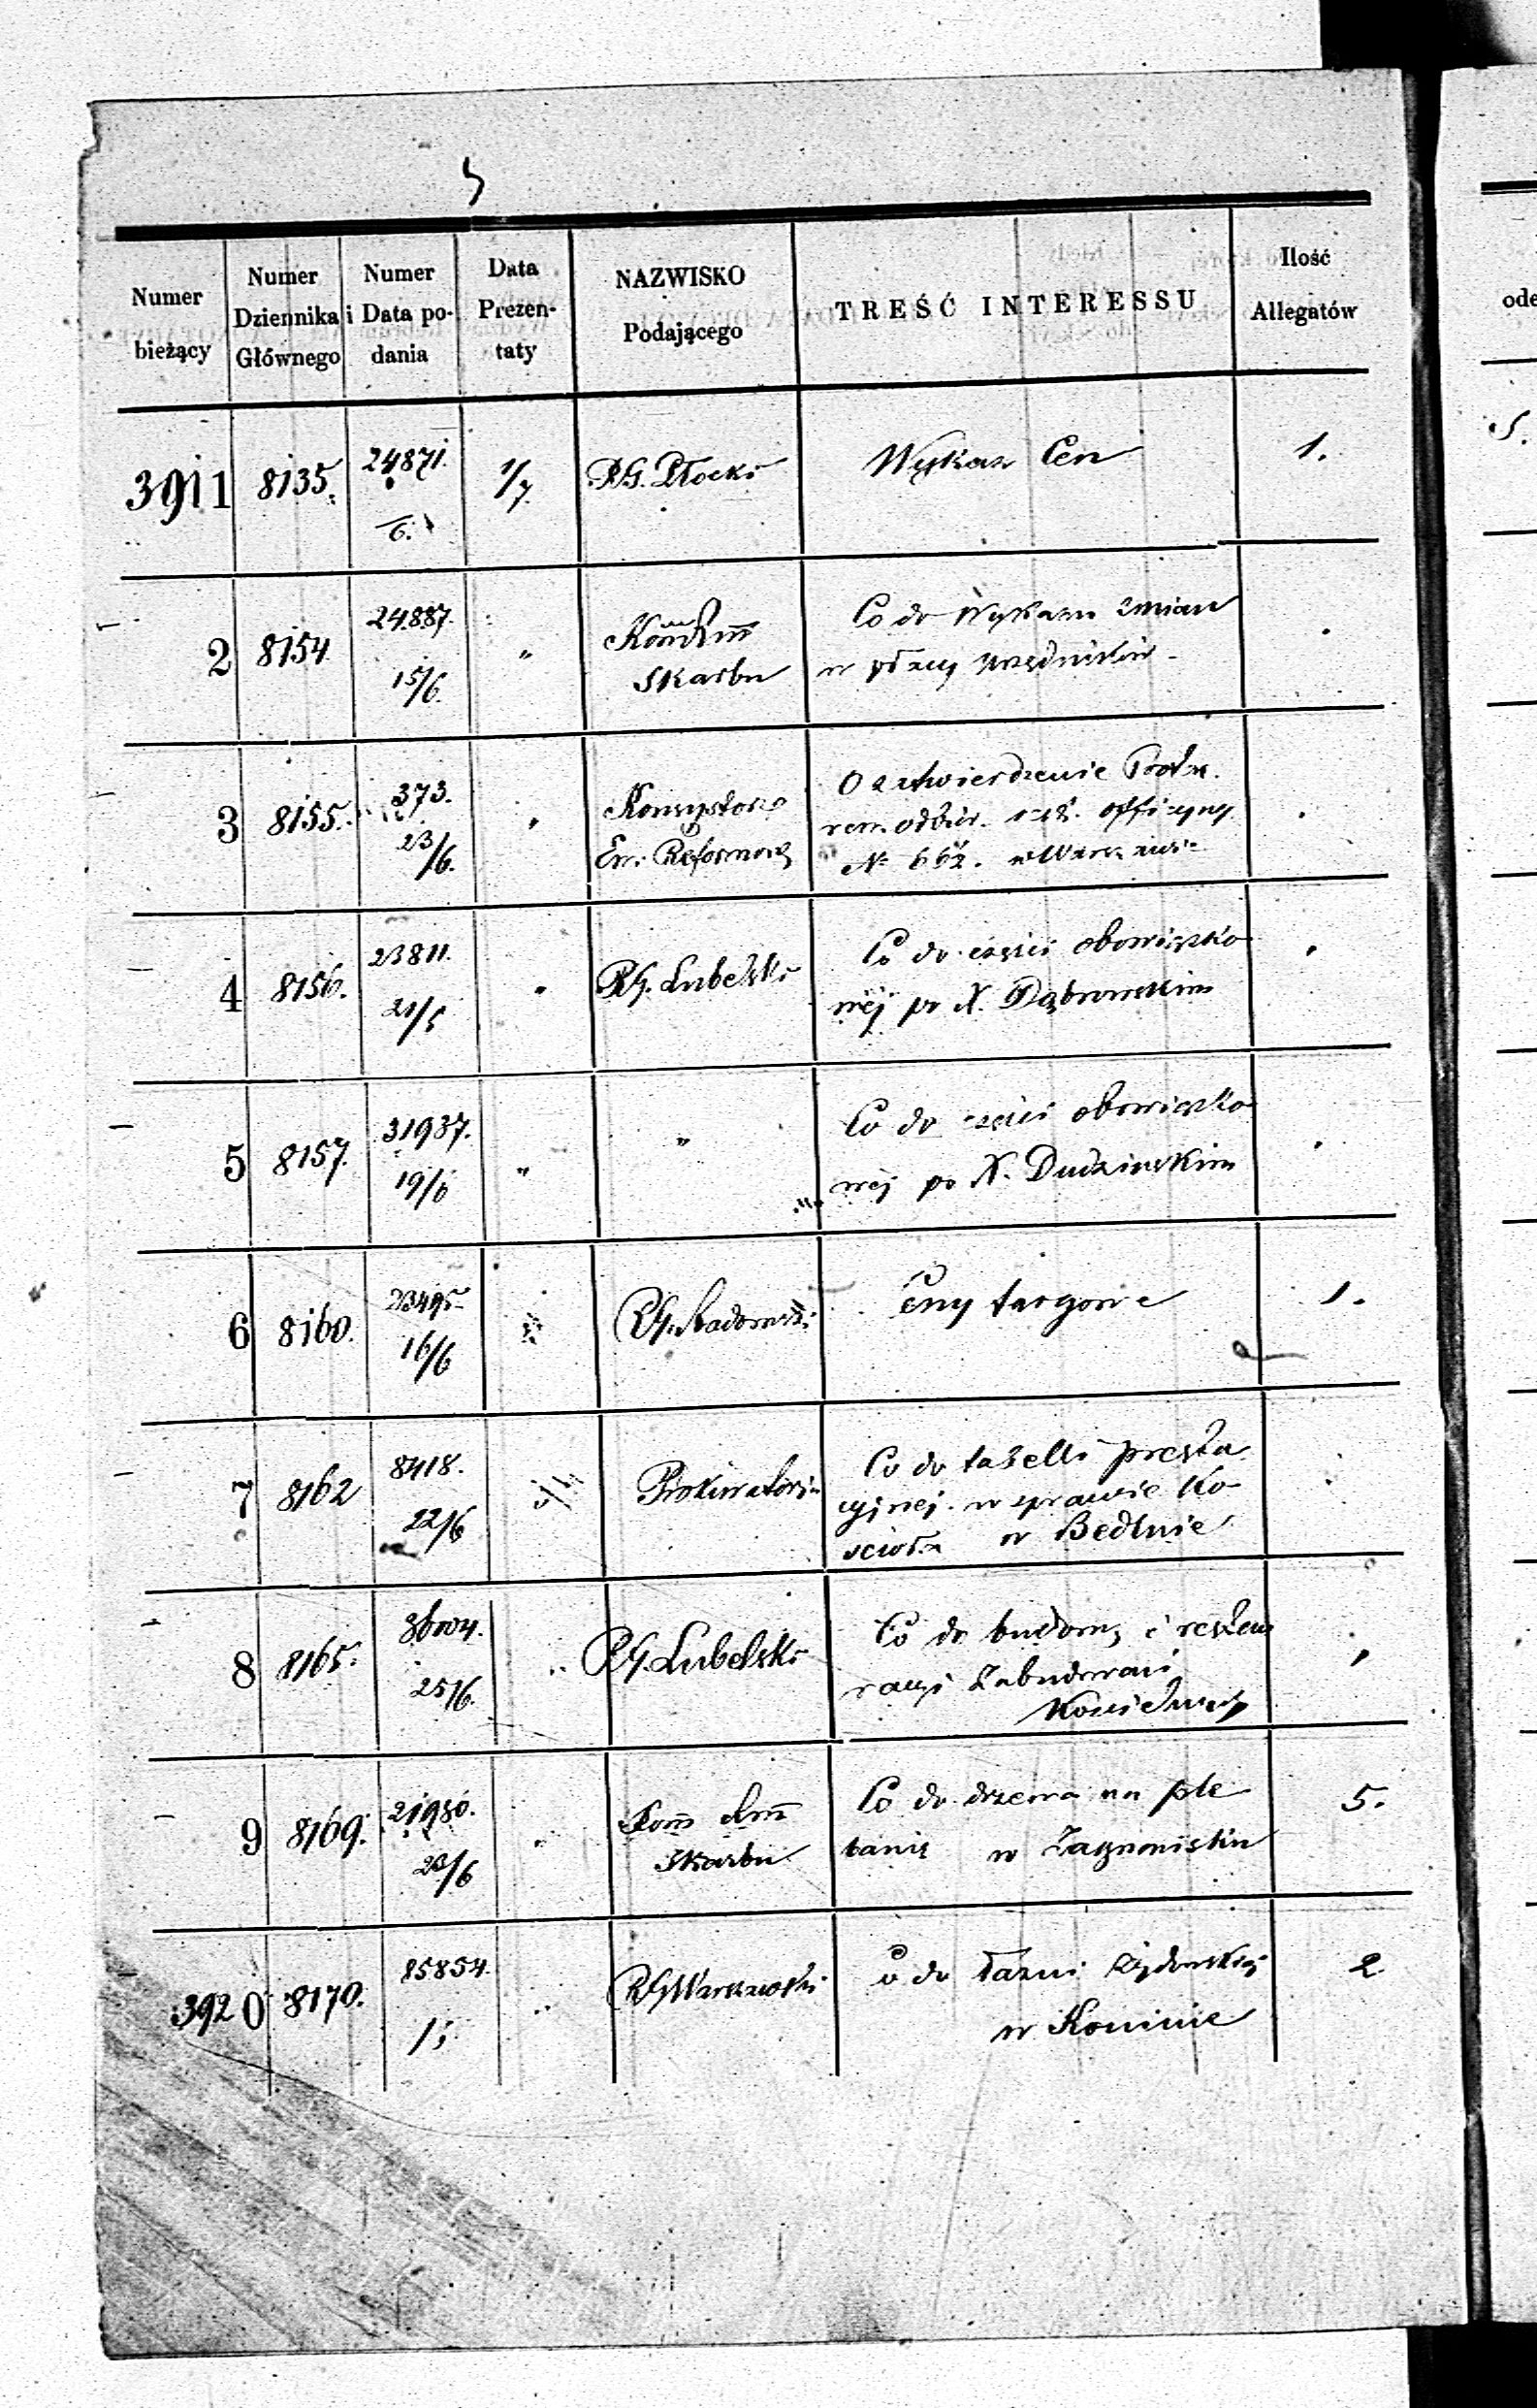 Numer bieżący | Numer Dziennika Głównego | Numer i Data podania | Data Prezentaty | NAZWISKO Podającego | TREŚĆ INTERESSU | Ilość Allegatów
3911 | 8135. | 24871. /6. | 1/7. | RG. Płocki | Wykaz Cen | 1.
2 | 8154 | 24.887. 15/6. | " | Skarbu | Co do Wykazu zmian
w płacy urzędników
3 | 8155. | 373. 23/6. | " | Konsystorz | O zatwierdzenie
Ew. Reformow | odbior. officyny
№ 662. w Warszawie
4 | 8156. | 23811. 21/5 | " | RG. Lubelski | Co do części obowiązko
wéj po X. Dąbrowskim
5 | 8157. | 31937. 19/6 | " | " | Co do części obowiązko
wej po X. Dudzinskim
6 | 8160. | 23495. 16/6 | RG. Radomski | Ceny targowe | 1.
7 | 8162 | 8418. 22/6 | Prokuratoria | Co do tabelli presta
cyjnej w sprawie Ko-
scioła w Bedlnie
8 | 8165. | 25/6. | RG. Lubelski | Co do budowy i restau
racyi Zabudowań
9 | 8169. | 21980. 23/6 | " | Komm | Co do drzewa na ple | 5.
Skarbu | banię w Zagnanisku
3920 | 8170. | 85854. | " | RG Warszawski | Co do łazni żydowskiej | 2.
w Koninie